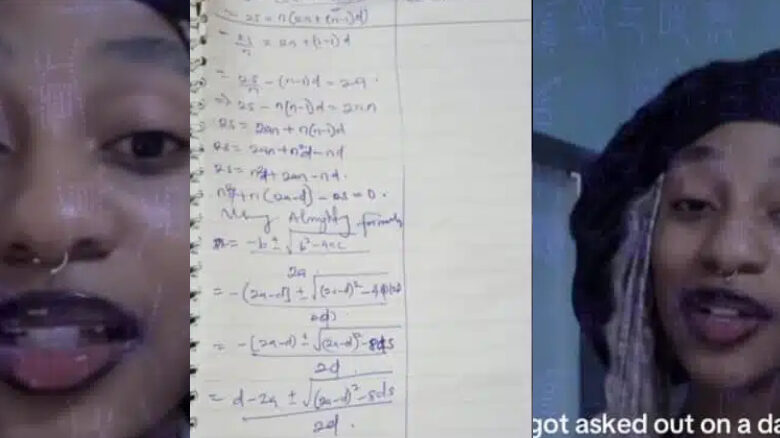 2S = n(2a+(n-1)d)
2S/n = 2a+(n-1)d
= 2S/n - (n-1)d = 2a.
=> 2S - n(n-1)d = 2an
2S = 2an + n(n-1)d
2S = 2an + n²d - nd
2S = n²d + 2an - nd.
n²d + n(2a-d) - 2S = 0.
Using Almighty formula
n = -b ± √b²-4ac
2a
= -(2a-d) ± √(2a-d)²-4
2d
= -(2a-d) ± √(2a-d)²-8dS
2d
= d-2a ± √(2a-d)²-8dS
2d.
got asked out on a da